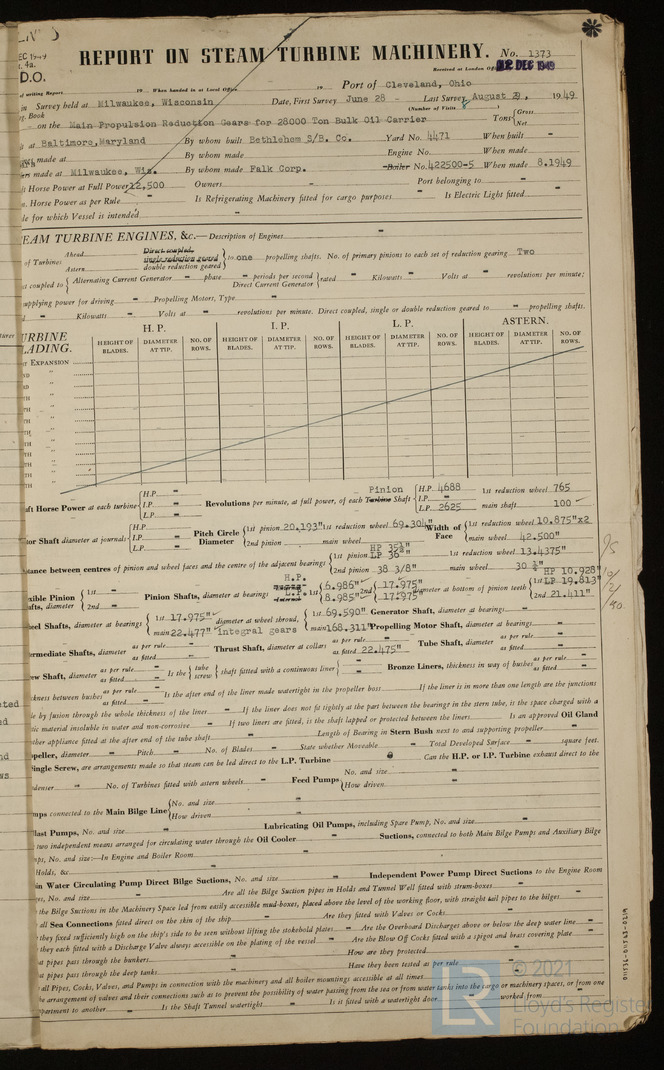 REPORT ON STEAM TURBINE MACHINERY. No. 1373
DEC 1949
4a.
D.O.
Received at London 22 DEC 1949
of writing Report 19 When handed in at Local Office 19 Port of Cleveland, Ohio
in Survey held at Milwaukee, Wisconsin Date, First Survey June 28 - Last Survey August 29, 1949
Book (Number of Visits )
on the Main Propulsion Reduction Gears for 28000 Ton Bulk Oil Carrier Tons { Gross Net
at Baltimore, Maryland By whom built Bethlehem S/B. Co. Yard No. 4471 When built -
made at By whom made Engine No. When made
made at Milwaukee, Wis. By whom made Falk Corp. Boiler No. 422500-5 When made 8.1949
Horse Power at Full Power 12,500 Owners - Port belonging to -
Horse Power as per Rule - Is Refrigerating Machinery fitted for cargo purposes - Is Electric Light fitted -
for which Vessel is intended -
STEAM TURBINE ENGINES, &c.—Description of Engines -
of Turbines Ahead Astern Direct coupled, single reduction geared double reduction geared } to one propelling shafts. No. of primary pinions to each set of reduction gearing Two
coupled to { Alternating Current Generator - phase - periods per second Direct Current Generator } rated - Kilowatts - Volts at - revolutions per minute;
supplying power for driving - Propelling Motors, Type -
- Kilowatts - Volts at - revolutions per minute. Direct coupled, single or double reduction geared to - propelling shafts.
TURBINE BLADING. H. P. I. P. L. P. ASTERN.
HEIGHT OF BLADES. DIAMETER AT TIP. NO. OF ROWS. HEIGHT OF BLADES. DIAMETER AT TIP. NO. OF ROWS. HEIGHT OF BLADES. DIAMETER AT TIP. NO. OF ROWS. HEIGHT OF BLADES. DIAMETER AT TIP. NO. OF ROWS.
EXPANSION
Shaft Horse Power at each turbine { H.P. - I.P. - L.P. - Revolutions per minute, at full power, of each Turbine Pinion Shaft { H.P. 4688 I.P. - L.P. 2625 1st reduction wheel 765 main shaft 100
Rotor Shaft diameter at journals { H.P. - I.P. - L.P. - Pitch Circle Diameter { 1st pinion 20.193" 1st reduction wheel 69.304" 2nd pinion main wheel Width of Face { 1st reduction wheel 10.875"x2 main wheel 42.500"
Distance between centres of pinion and wheel faces and the centre of the adjacent bearings { 1st pinion LP 36" 2nd pinion 38 3/8" 1st reduction wheel 13.4375" main wheel
Flexible Pinion Shafts, diameter { 1st - 2nd - Pinion Shafts, diameter at bearings H.P. L.P. 1st { 6.986" 8.985" 2nd { 17.975" 17.975" diameter at bottom of pinion teeth { 1st HP 10.928" LP 19.813" 2nd 21.411"
Wheel Shafts, diameter at bearings { 1st 17.975" main 22.477" diameter at wheel shroud, { 1st 69.590" main 168.311" Generator Shaft, diameter at bearings -
integral gears Propelling Motor Shaft, diameter at bearings -
Intermediate Shafts, diameter as per rule as fitted - Thrust Shaft, diameter at collars as per rule as fitted 22.475" Tube Shaft, diameter as per rule as fitted -
Screw Shaft, diameter as per rule as fitted - Is the { tube screw } shaft fitted with a continuous liner { - Bronze Liners, thickness in way of bushes as per rule as fitted -
thickness between bushes as per rule as fitted - Is the after end of the liner made watertight in the propeller boss - If the liner is in more than one length are the junctions
by fusion through the whole thickness of the liner - If the liner does not fit tightly at the part between the bearings in the stern tube, is the space charged with a
material insoluble in water and non-corrosive - If two liners are fitted, is the shaft lapped or protected between the liners - Is an approved Oil Gland
other appliance fitted at the after end of the tube shaft - Length of Bearing in Stern Bush next to and supporting propeller -
Propeller, diameter - Pitch - No. of Blades - State whether Moveable - Total Developed Surface - square feet.
Single Screw, are arrangements made so that steam can be led direct to the L.P. Turbine Can the H.P. or I.P. Turbine exhaust direct to the
Condenser - No. of Turbines fitted with astern wheels - Feed Pumps { No. and size - How driven -
Pumps connected to the Main Bilge Line { No. and size - How driven -
Ballast Pumps, No. and size - Lubricating Oil Pumps, including Spare Pump, No. and size -
two independent means arranged for circulating water through the Oil Cooler - Suctions, connected to both Main Bilge Pumps and Auxiliary Bilge
Pumps, No. and size:—In Engine and Boiler Room -
Holds, &c. -
Main Water Circulating Pump Direct Bilge Suctions, No. and size - Independent Power Pump Direct Suctions to the Engine Room
No. and size - Are all the Bilge Suction pipes in Holds and Tunnel Well fitted with strum-boxes -
the Bilge Suctions in the Machinery Space led from easily accessible mud-boxes, placed above the level of the working floor, with straight tail pipes to the bilges -
all Sea Connections fitted direct on the skin of the ship - Are they fitted with Valves or Cocks -
they fixed sufficiently high on the ship's side to be seen without lifting the stokehold plates - Are the Overboard Discharges above or below the deep water line -
they each fitted with a Discharge Valve always accessible on the plating of the vessel - Are the Blow Off Cocks fitted with a spigot and brass covering plate -
pipes pass through the bunkers - How are they protected -
pipes pass through the deep tanks - Have they been tested as per rule -
all Pipes, Cocks, Valves, and Pumps in connection with the machinery and all boiler mountings accessible at all times -
the arrangement of valves and their connections such as to prevent the possibility of water passing from the sea or from water tanks into the cargo or machinery spaces, or from one
compartment to another - Is the Shaft Tunnel watertight - Is it fitted with a watertight door - worked from -
© 2021
Lloyd's Register
Foundation
LR